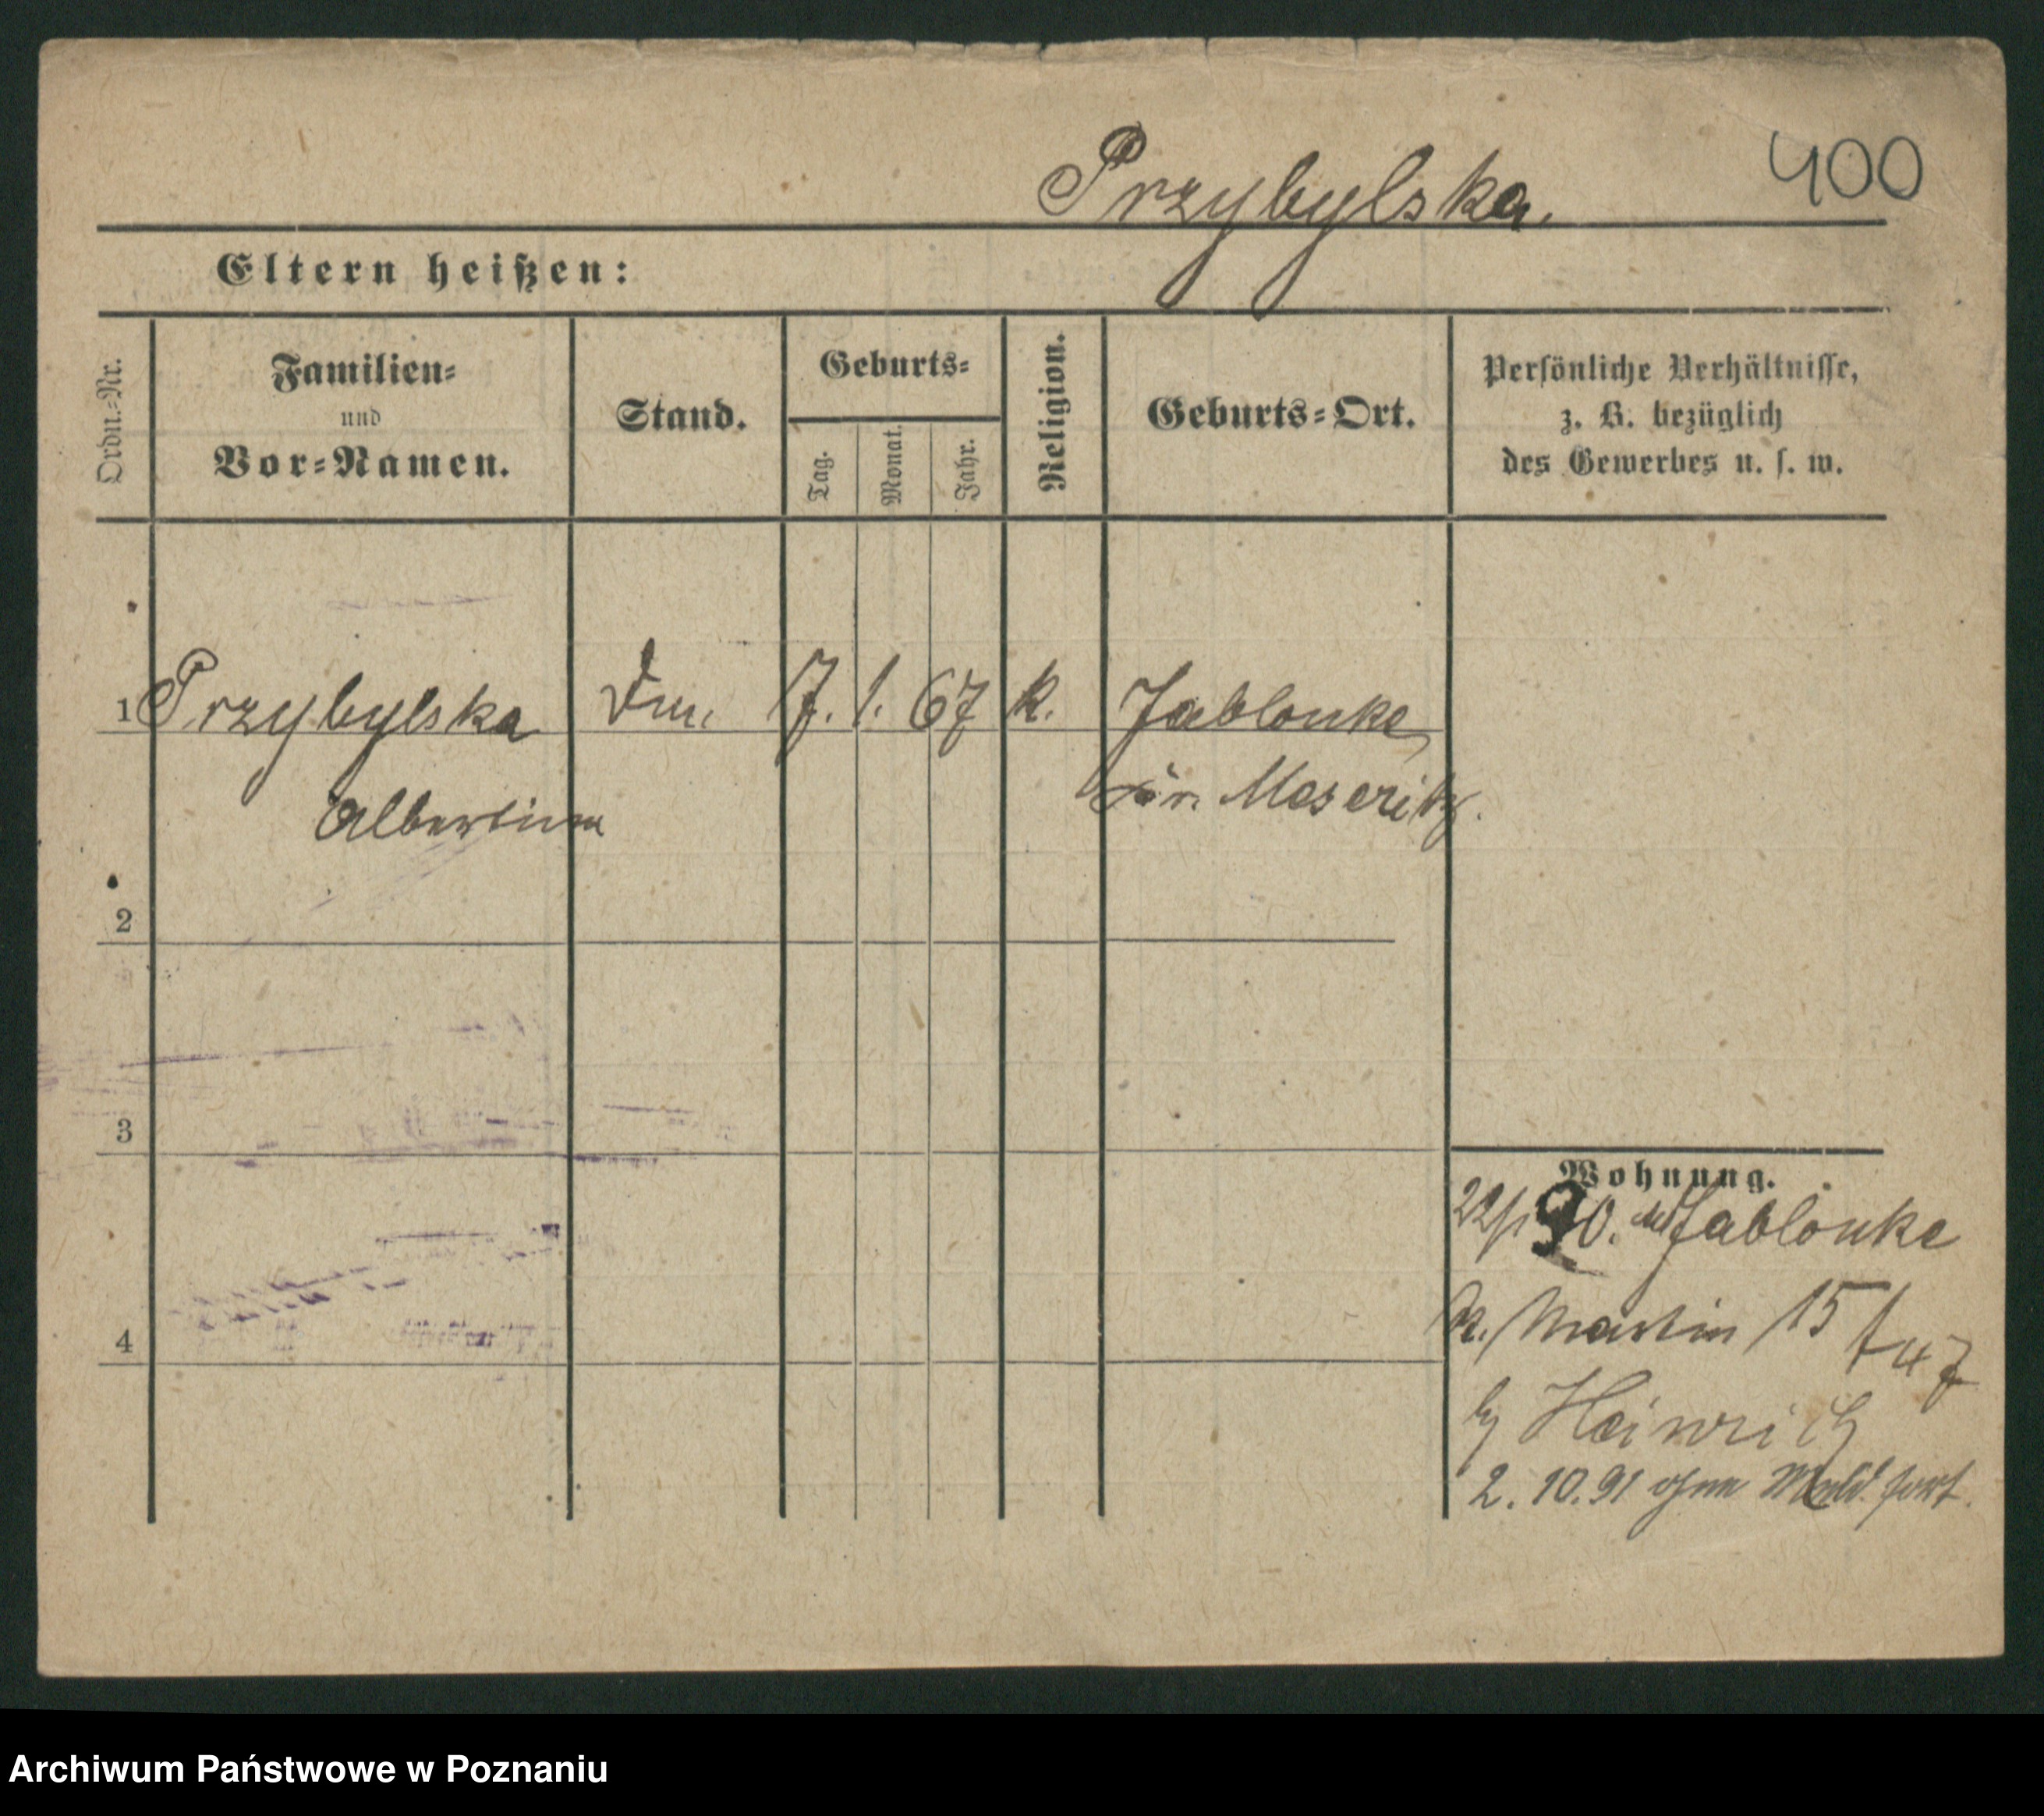 Przybylska.
400
Eltern heißen:
Ordn.-Nr.
Familien-
und
Vor-Namen.
Stand.
Geburts-
Tag.
Monat.
Jahr.
Religion.
Geburts-Ort.
Persönliche Verhältnisse,
z. B. bezüglich
des Gewerbes u. s. w.
1 Przybylska 7. 1. 67 k. Jablonke
Albertine Kr. Meseritz.
2
3
4
Wohnung.
90. Jablonke
Martin 15
Heinrich
2. 10. 91 ohne Meld. fort.
Archiwum Państwowe w Poznaniu